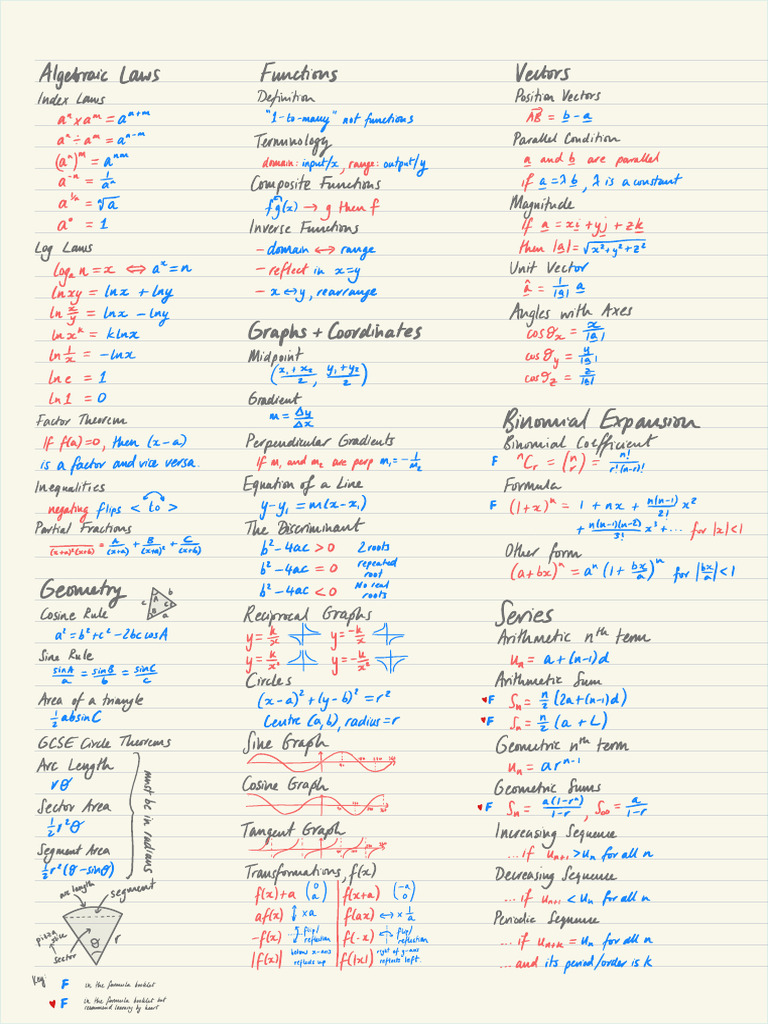 Algebraic Laws
Index Laws
aⁿ × aᵐ = aⁿ⁺ᵐ
aⁿ ÷ aᵐ = aⁿ⁻ᵐ
(aⁿ)ᵐ = aⁿᵐ
a⁻ⁿ = 1/aⁿ
a^(1/n) = ⁿ√a
a⁰ = 1
Log Laws
logₐ n = x ⇔ aˣ = n
ln xy = ln x + ln y
ln x/y = ln x − ln y
ln xᵏ = k ln x
ln 1/x = −ln x
ln e = 1
ln 1 = 0
Factor Theorem
If f(a)=0, then (x−a)
is a factor and vice versa.
Inequalities
negating flips < to >
Partial Fractions
1/((x+a)²(x+b)) = A/(x+a) + B/(x+a)² + C/(x+b)
Geometry
A b c B C a
Cosine Rule
a² = b² + c² − 2bc cos A
Sine Rule
sinA/a = sinB/b = sinC/c
Area of a triangle
½ab sin C
GCSE Circle Theorems
Arc Length
rθ
Sector Area
½r²θ
Segment Area
½r²(θ − sinθ)
must be in radians
arc length
segment
pizza slice
θ
r
sector
Key:
F in the formula booklet
♥ F in the formula booklet but recommend learning by heart
Functions
Definition
"1-to-many" not functions
Terminology
domain: input/x, range: output/y
Composite Functions
fg(x) → g then f
Inverse Functions
– domain ↔ range
– reflect in x=y
– x ↔ y, rearrange
Graphs + Coordinates
Midpoint
((x₁+x₂)/2, (y₁+y₂)/2)
Gradient
m = Δy/Δx
Perpendicular Gradients
If m₁ and m₂ are perp m₁ = −1/m₂
Equation of a Line
y−y₁ = m(x−x₁)
The Discriminant
b²−4ac > 0 2 roots
b²−4ac = 0 repeated root
b²−4ac < 0 No real roots
Reciprocal Graphs
y = k/x y = −k/x
y = k/x² y = −k/x²
Circles
(x−a)² + (y−b)² = r²
Centre (a,b), radius = r
Sine Graph
Cosine Graph
Tangent Graph
Transformations, f(x)
f(x)+a (0 a) f(x+a) (−a 0)
af(x) ↕ ×a f(ax) ↔ × 1/a
−f(x) flip/reflection f(−x) flip/reflection
|f(x)| below x-axis reflects up f(|x|) right of y-axis reflects left.
Vectors
Position Vectors
AB = b − a
Parallel Condition
a and b are parallel
if a = λb, λ is a constant
Magnitude
if a = xi + yj + zk
then |a| = √(x²+y²+z²)
Unit Vector
â = 1/|a| a
Angles with Axes
cosθₓ = x/|a|
cosθᵧ = y/|a|
cosθ_z = z/|a|
Binomial Expansion
Binomial Coefficient
F ⁿCᵣ = (n r) = n!/(r!(n−r)!)
Formula
F (1+x)ⁿ = 1 + nx + n(n−1)/2! x²
+ n(n−1)(n−2)/3! x³ + ... for |x|<1
Other form
(a+bx)ⁿ = aⁿ(1 + bx/a)ⁿ for |bx/a| < 1
Series
Arithmetic nᵗʰ term
uₙ = a + (n−1)d
Arithmetic Sum
♥F Sₙ = n/2 (2a+(n−1)d)
♥F Sₙ = n/2 (a + L)
Geometric nᵗʰ term
uₙ = arⁿ⁻¹
Geometric Sums
♥F Sₙ = a(1−rⁿ)/(1−r), S∞ = a/(1−r)
Increasing Sequence
...if uₙ₊₁ > uₙ for all n
Decreasing Sequence
...if uₙ₊₁ < uₙ for all n
Periodic Sequence
...if uₙ₊ₖ = uₙ for all n
...and its period/order is k